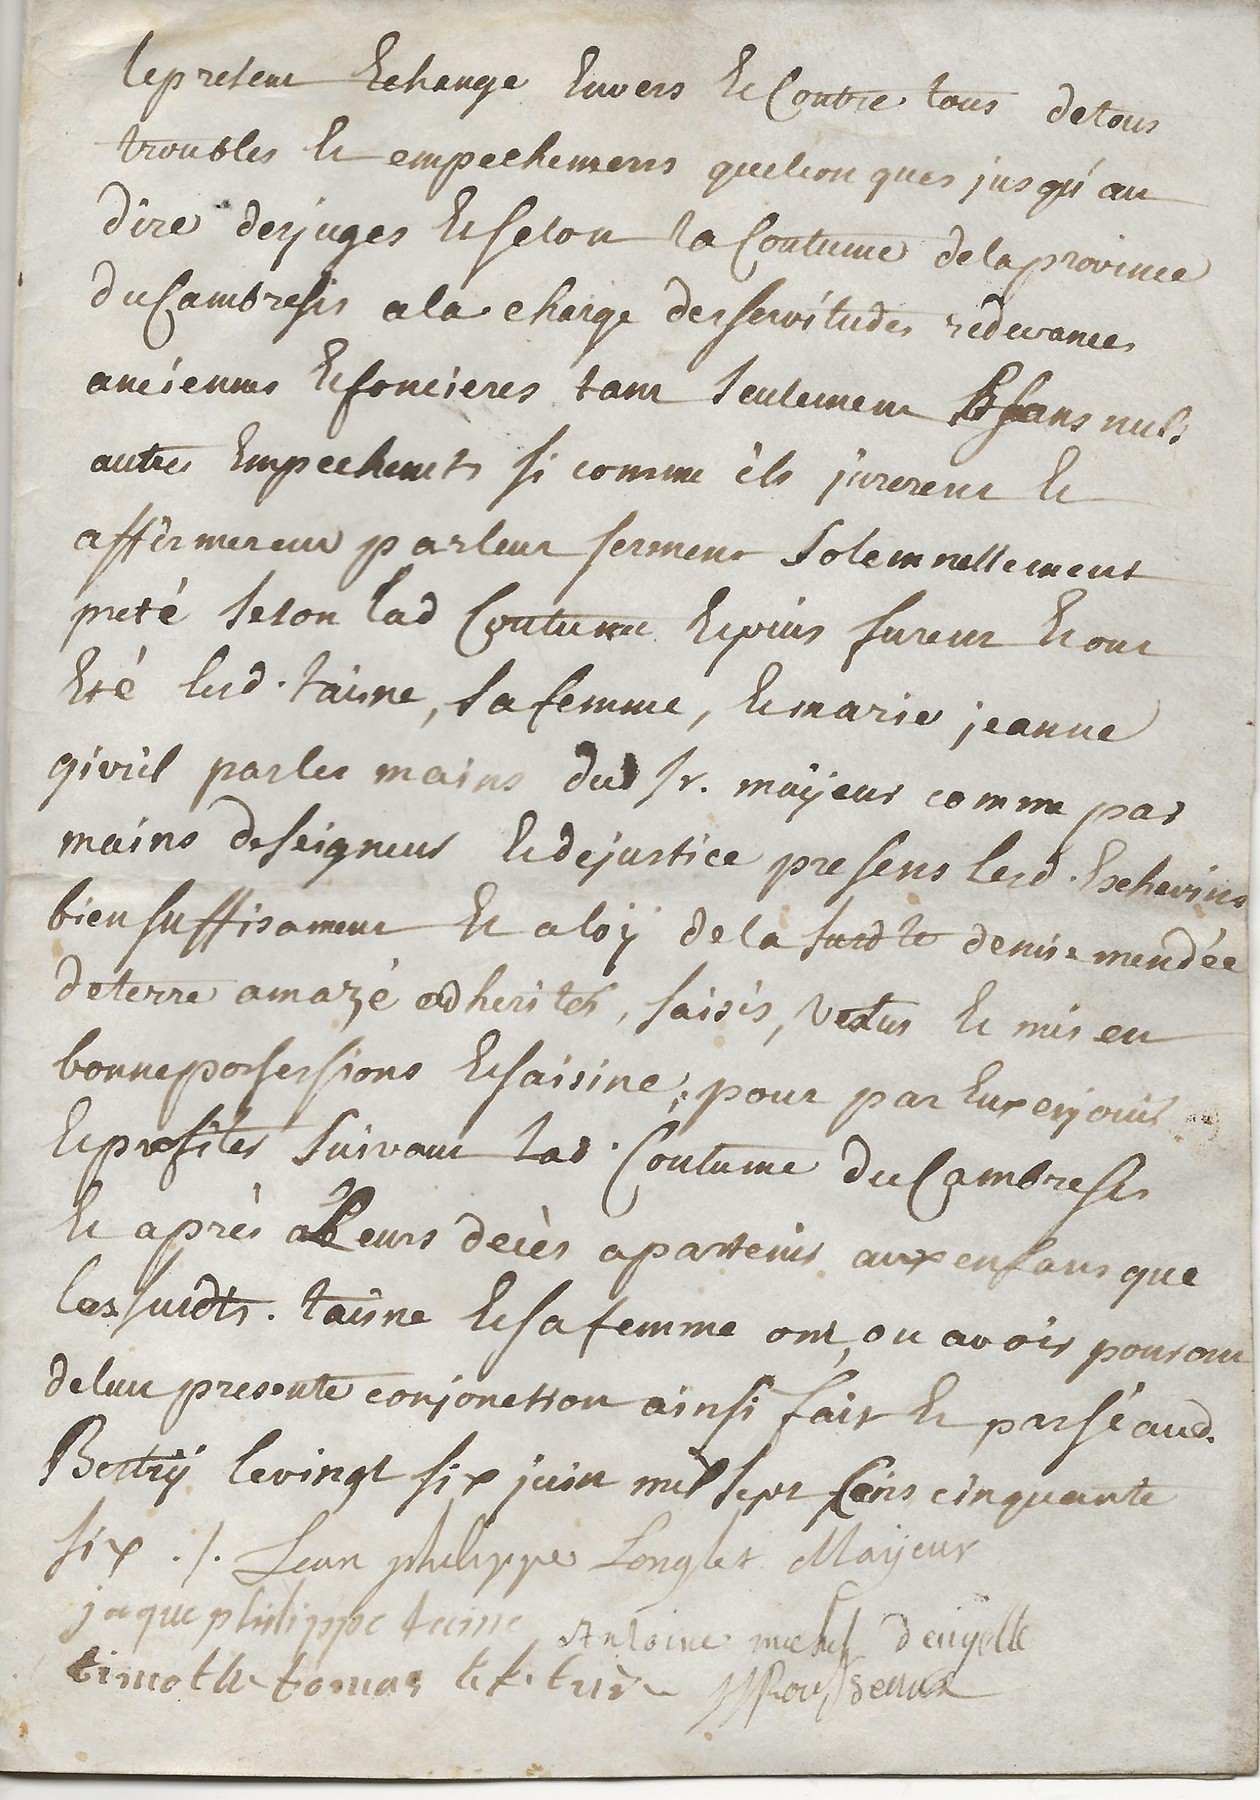 le present Echange Envers Et Contre tous de tous
troubles Et empechemens quelconques jusqu'au
dire des juges Et selon la Coutume de la province
du Cambresis a la charge des servitudes redevances
anciennes Et foncieres tant seulement Et sans nuls
autres Empechemts si comme ils jurerent Et
affirmerent par leur serment solemnellement
preté selon lad Coutume Et puis furent Et ont
Eté lesd. taisne, sa femme, Et marie jeanne
par les mains dud sr. maÿeur comme par
mains de seigneur Et de justice presens lesd. Echevins
bien suffisament Et a loÿ de la susdte demie mendée
de terre amazé adherités, saisis, vestus Et mis en
bonne possessions Et saisine, pour par Eux en jouir
Et profiter suivant lad. Coutume du Cambresis
Et après a Leurs decès apartenir aux enfans que
les susdts. taisne Et sa femme ont, ou avoir pouront
de leur presente conjonction ainsi fait Et passé aud.
Bertrÿ le vingt six juin mil sept Cens cinquante
six ./. Jean philippe Longlet Maÿeur
jaque philippe taisne Antoine
timothé tomas